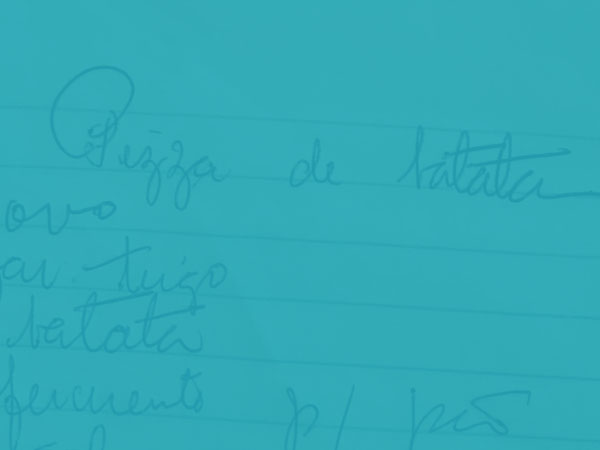 Pizza de batata
ovo
ar trigo
batata
fermento p/ pão